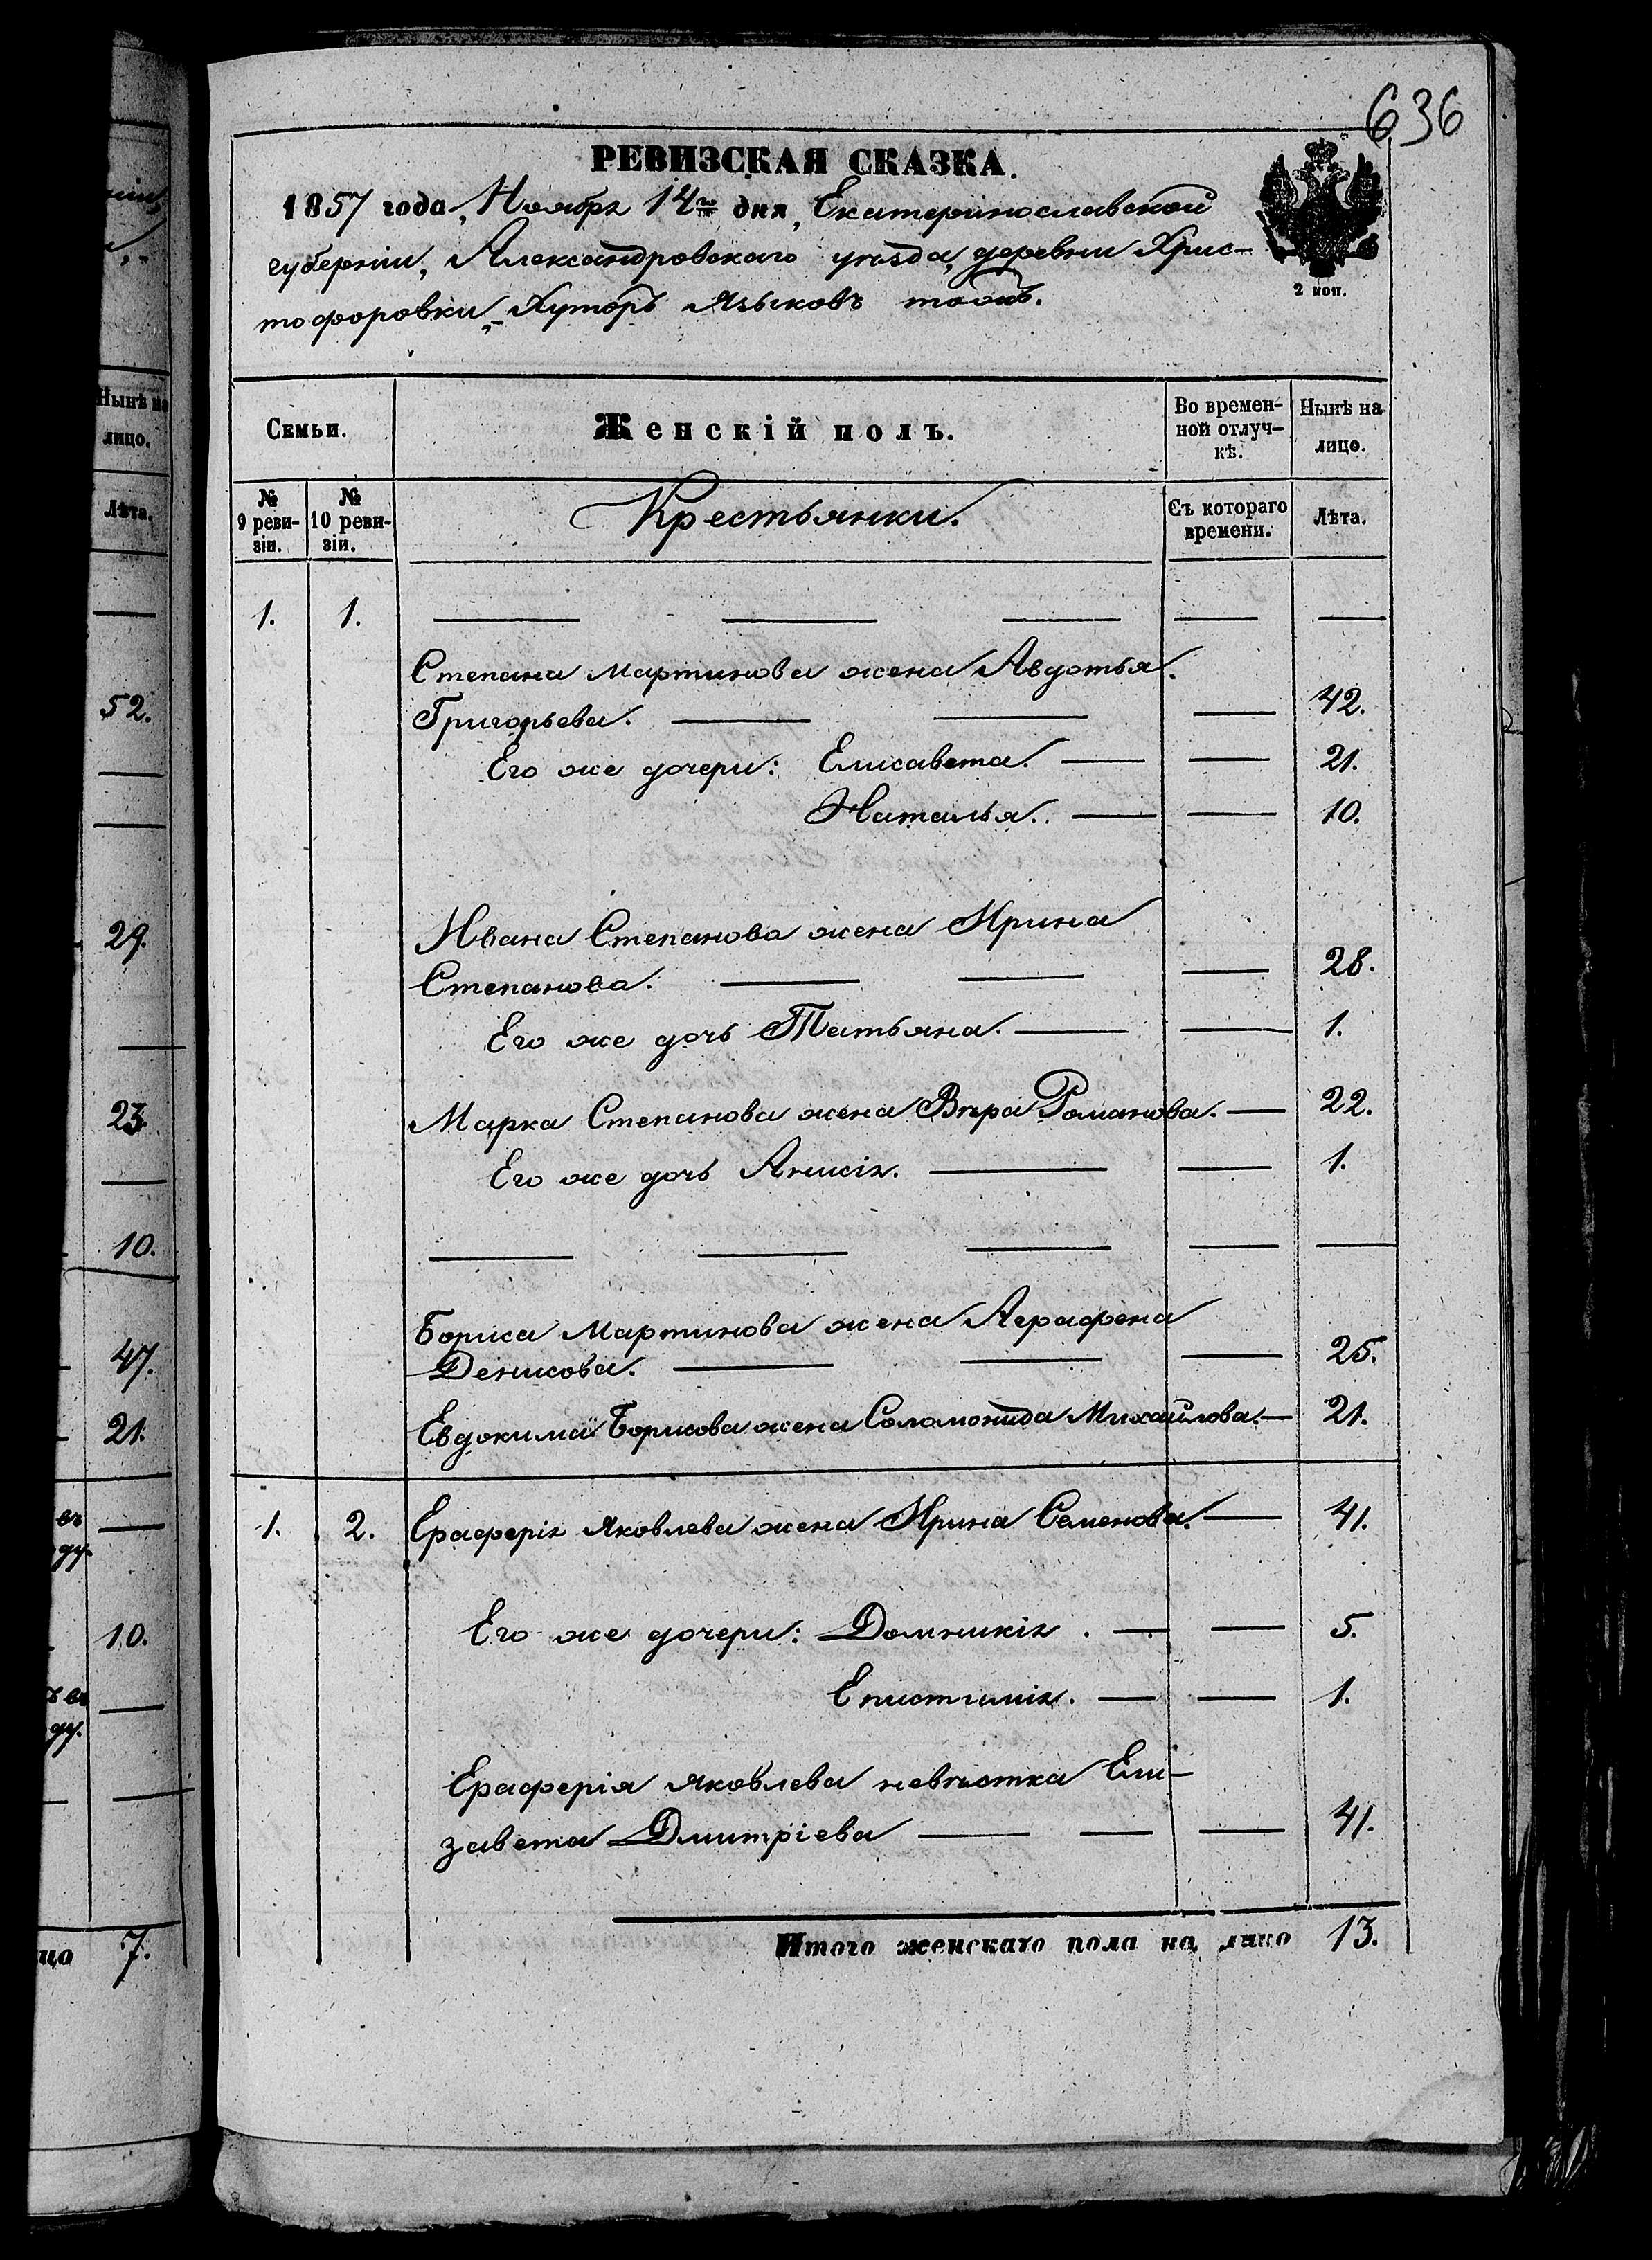 636
РЕВИЗСКАЯ СКАЗКА.
1857 года, Ноября 14го дня, Екатеринославской
губерніи, Александровскаго уѣзда, деревни Хрис-
тофоровки, Хуторъ Языковъ тожъ.
2 коп.
Семьи.
Женскій полъ.
Во времен-
ной отлуч-
кѣ.
Нынѣ на
лицо.
№
9 реви-
зіи.
№
10 реви-
зіи.
Крестьянки.
Съ котораго
времени.
Лѣта.
1. 1.
Степана Мартинова жена Авдотья
Григорьева. 42.
Его же дочери: Елисавета. 21.
Наталья. 10.
Ивана Степанова жена Ирина
Степанова. 28.
Его же дочь Татьяна. 1.
Марка Степанова жена Вѣра Романова. 22.
Его же дочь Анисія. 1.
Бориса Мартинова жена Аграфена
Денисова. 25.
Евдокима Борисова жена Соломонида Михайлова. 21.
1. 2. Ераферія Яковлева жена Ирина Семенова. 41.
Его же дочери: Домникія. 5.
Епистимія. 1.
Ераферія Яковлева невѣстка Ели-
завета Дмитріева 41.
Итого женскаго пола на лицо 13.
Нынѣ на
лицо.
Лѣта.
52.
29.
23.
10.
47.
21.
10.
7.